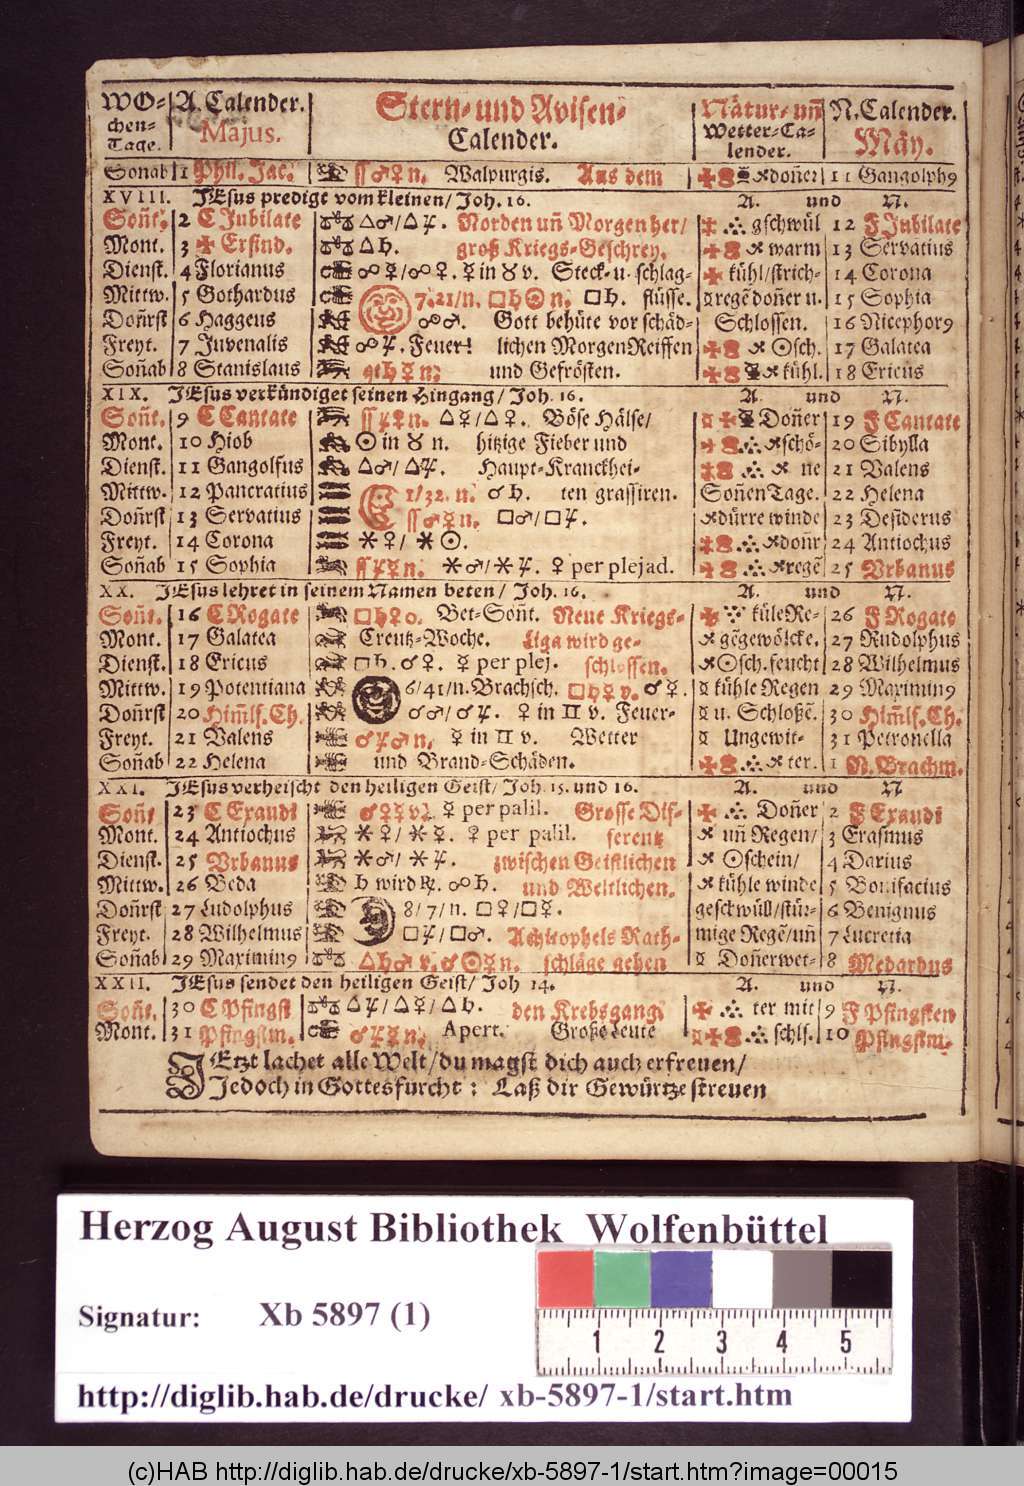 WO- A. Calender. Stern- und Avisen- Natur- uñ N. Calender.
chen- Majus. Calender. Wetter-Ca- May.
Tage. lender.
Sonab 1 Phil. Jac. ♂ ♀ n. Walpurgis. Aus dem doñer 11 Gangolph9
XVIII. JEsus predigt vom kleinen/ Joh. 16. A. und N.
Soñt. 2 C Jubilate △♂/△♃. Norden uñ Morgen her/ ∴ gschwül 12 F Jubilate
Mont. 3 ✠ Erfind. △♄. groß Kriegs-Geschrey. warm 13 Servatius
Dienst. 4 Florianus ☍☿/☍♀. ☿ in ♉ v. Steck- u. schlag- kühl/strich- 14 Corona
Mittw. 5 Gothardus 7. 21/n. □♄☉ n. □♄. flüsse. regẽ doñer u. 15 Sophia
Doñrst 6 Haggeus ☍♂. Gott behüte vor schäd- Schlossen. 16 Nicephor9
Freyt. 7 Juvenalis ☍♃. Feuer! lichen Morgen Reiffen ☉sch. 17 Galatea
Soñab 8 Stanislaus ♄☿ n. und Gefrösten. kühl. 18 Ericus
XIX. JEsus verkündiget seinen Hingang/ Joh. 16. A. und N.
Soñt. 9 C Cantate △☿/△♀. Böse Hälse/ Doñer 19 F Cantate
Mont. 10 Hiob ☉ in ♉ n. hitzige Fieber und ∴ schö- 20 Sibylla
Dienst. 11 Gangolfus △♂/△♃. Haupt-Kranckhei- ∴ ne 21 Valens
Mittw. 12 Pancratius 1/32. n. ☌♄. ten grassiren. Soñen Tage. 22 Helena
Doñrst 13 Servatius ♂☿ n. □♂/□♃. dürre winde 23 Desiderus
Freyt. 14 Corona ⚹♀/ ⚹☉. ∴ doñr 24 Antiochus
Soñab 15 Sophia ♃☿ n. ⚹♂/⚹♃. ♀ per plejad. ∴ regẽ 25 Vrbanus
XX. JEsus lehret in seinem Namen beten/ Joh. 16. A. und N.
Soñt. 16 C Rogate □♄♀ o. Bet-Soñt. Neue Kriegs- küle Re- 26 F Rogate
Mont. 17 Galatea Creutz-Woche. Liga wird ge- gẽgewölcke. 27 Rudolphus
Dienst. 18 Ericus □♄. ☌♀. ☿ per plej. schlossen. ☉sch. feucht 28 Wilhelmus
Mittw. 19 Potentiana 6/41/n. Brachsch. □♄☿ v. ☌☿. kühle Regen 29 Maximin9
Doñrst 20 Him̃lf. Ch. ☌♂/☌♃. ♀ in ♊ v. Feuer- u. Schloßẽ. 30 Him̃lf. Ch.
Freyt. 21 Valens ☌♃♂ n. ☿ in ♊ v. Wetter Ungewit- 31 Petronella
Soñab 22 Helena und Brand-Schäden. ∴ ter. 1 N. Brachm.
XXI. JEsus verheischt den heiligen Geist/ Joh. 15. und 16. A. und N.
Soñt 23 C Exaudi ☌♀☿ v. ☿ per palil. Grosse Dif- ∴ Doñer 2 F Exaudi
Mont. 24 Antiochus ⚹♀/⚹☿. ♀ per palil. ferentz uñ Regen/ 3 Erasmus
Dienst. 25 Vrbanus ⚹♂/ ⚹♃. zwischen Geistlichen ☉schein/ 4 Darius
Mittw. 26 Beda ♄ wird ℞. ☍♄. und Weltlichen. kühle winde 5 Bonifacius
Doñrst 27 Ludolphus 8/7/n. □♀/□☿. geschwüll/stür- 6 Benignus
Freyt. 28 Wilhelmus □♃/□♂. Achitophels Rath- mige Regẽ/uñ 7 Lucretia
Soñab 29 Maximin9 △♄♂ v. ☌☉☿ n. schläge gehen Doñerwet- 8 Medardus
XXII. JEsus sendet den heiligen Geist/ Joh 14. A. und N.
Soñt. 30 C Pfingst △♃/△☿/△♄. den Krebsgang. ∴ ter mit 9 F Pfingsten
Mont. 31 Pfingstm. ☌♃☿ n. Apert. Große Leute ∴ schlf. 10 Pfingstm.
JEtzt lachet alle Welt/ du magst dich auch erfreuen/
Jedoch in Gottesfurcht: Laß dir Gewürtze streuen
Herzog August Bibliothek Wolfenbüttel
Signatur: Xb 5897 (1)
1 2 3 4 5
http://diglib.hab.de/drucke/ xb-5897-1/start.htm
(c)HAB http://diglib.hab.de/drucke/xb-5897-1/start.htm?image=00015